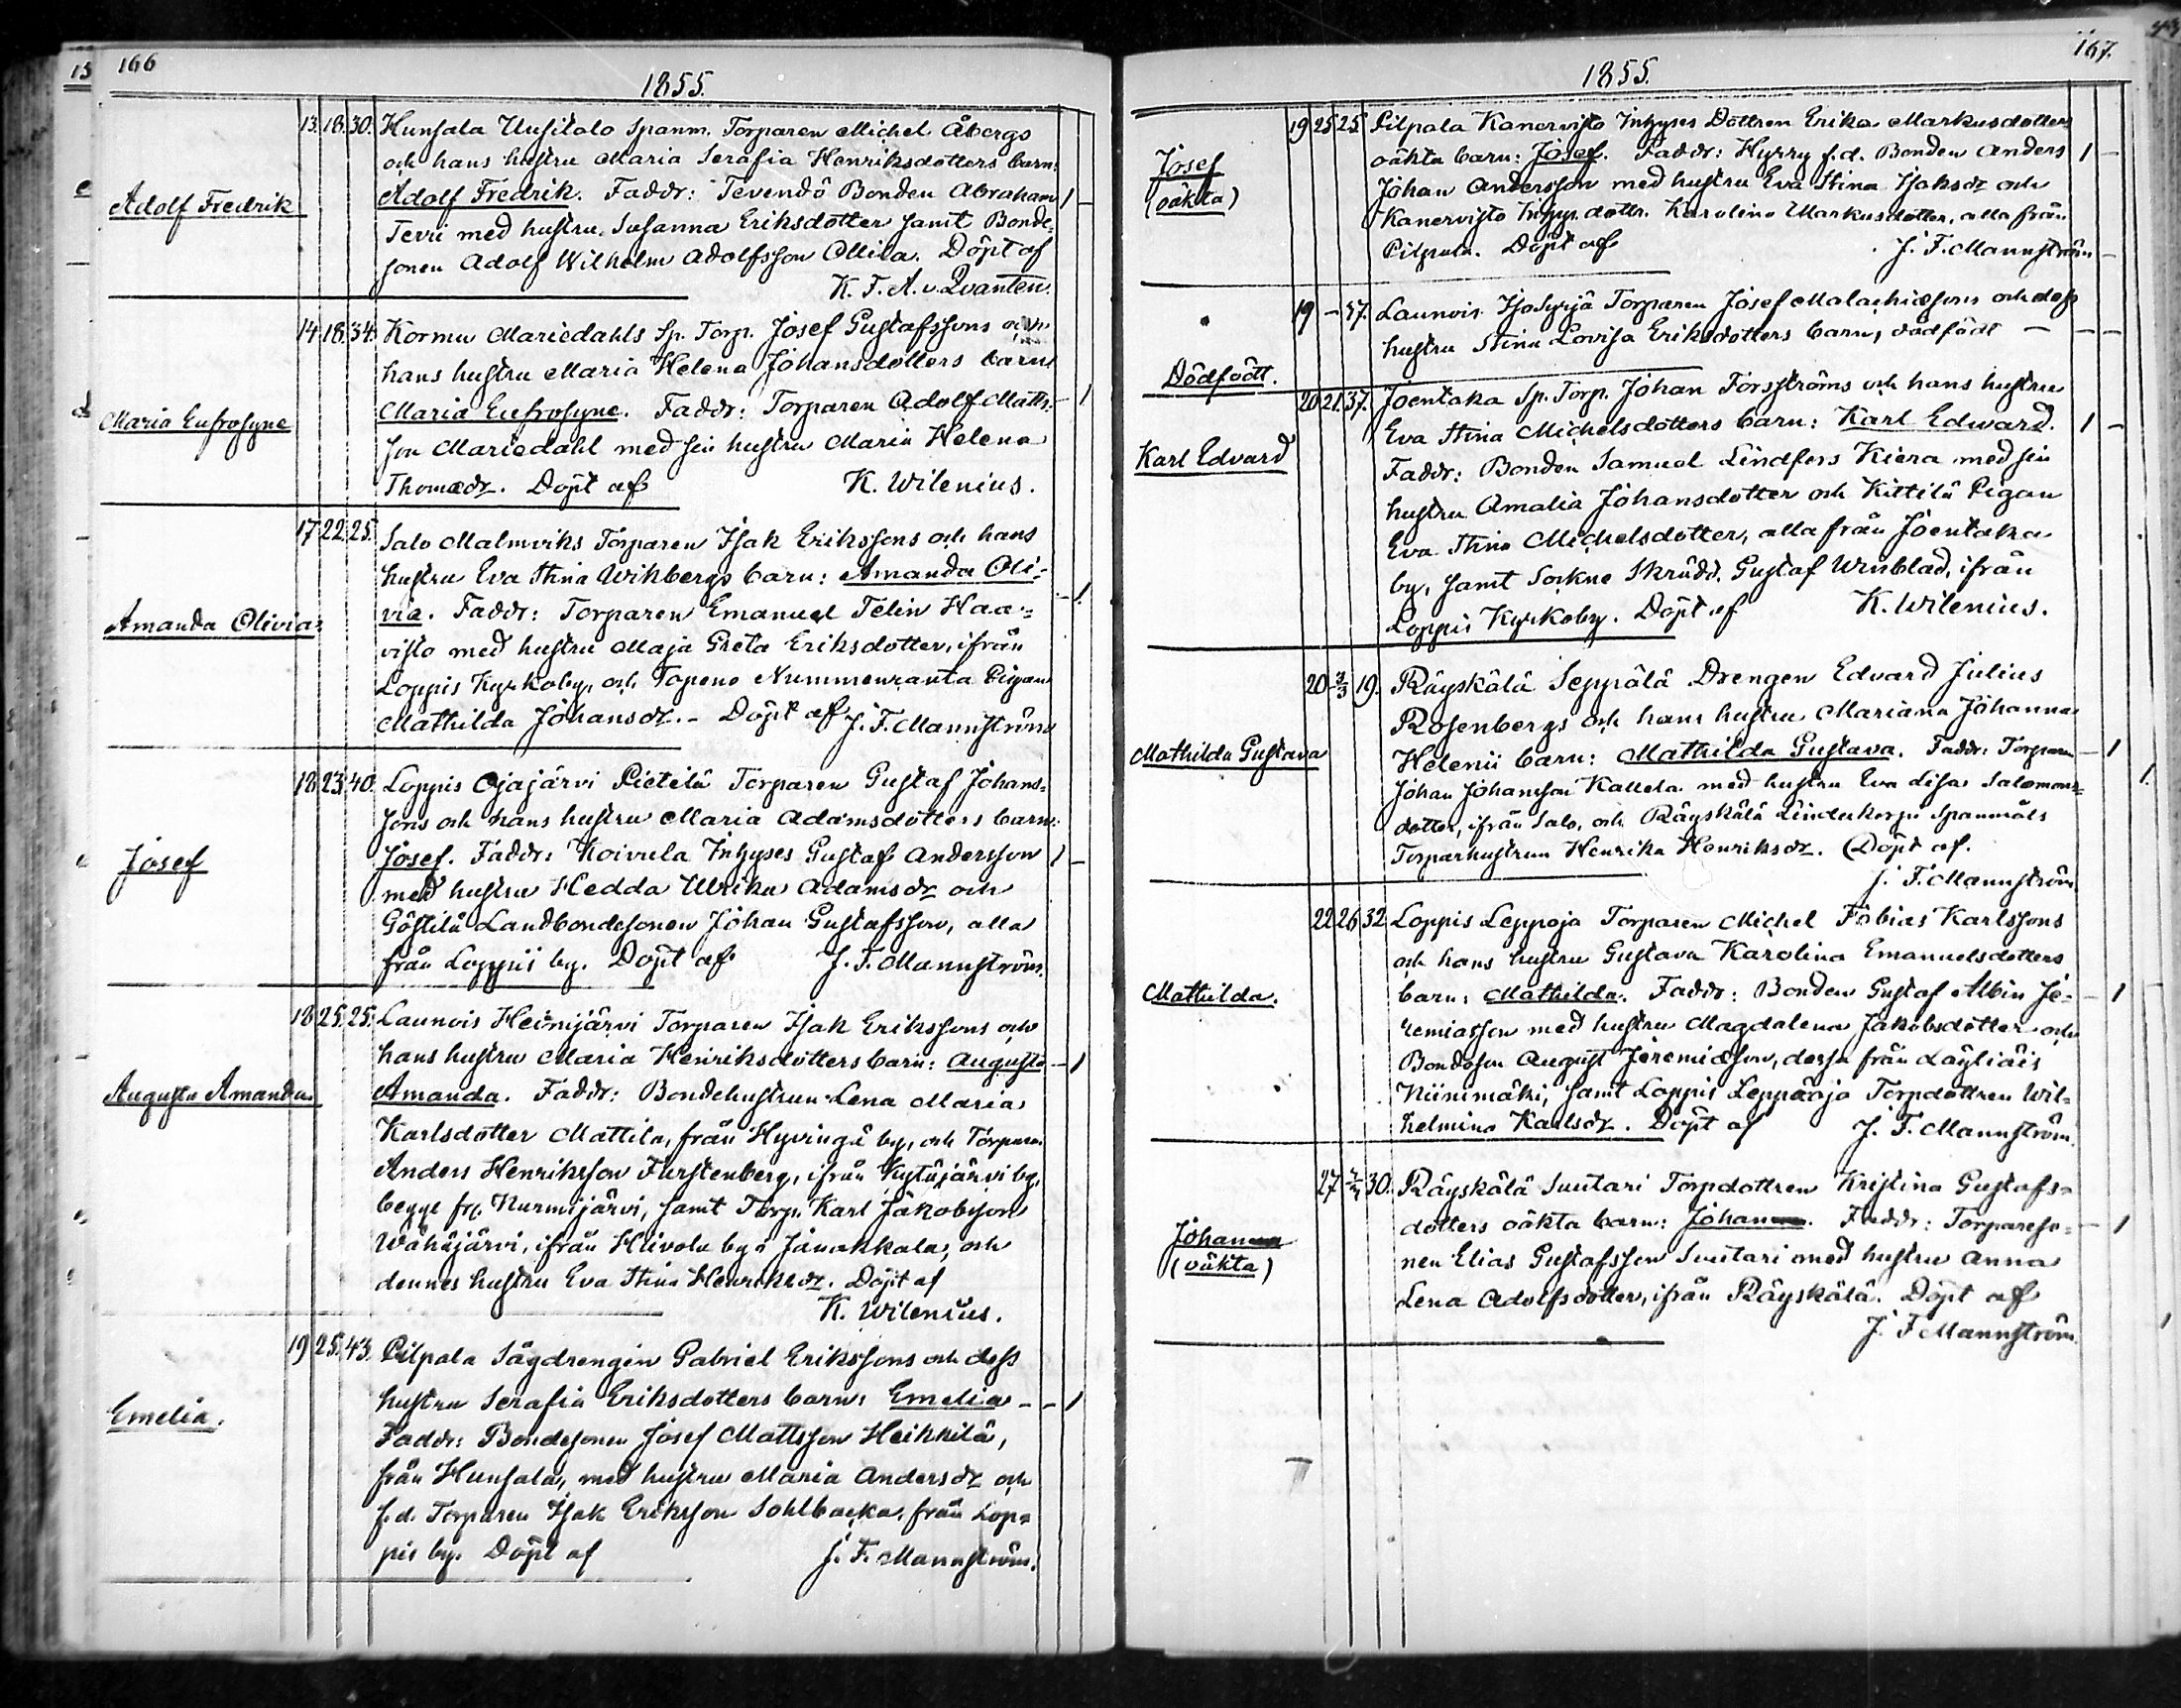 166
1855.
Adolf Fredrik
13. 18. 30. Hunsala Uusitalo Spanm. Torparen Michel Åbergs
och hans hustru Maria Serafia Henriksdotters barn:
Adolf Fredrik. Faddr: Tevendö Bonden Abraham 1 –
Tevri med hustru Susanna Eriksdotter samt Bonde=
sonen Adolf Wilhelm Adolfsson Ollila. Döpt af
K. F. A. v. Qvanten.
Maria Eufrosyne
14. 18. 34. Kormu Mariedahls Sp. Torp. Josef Gustafssons och
hans hustru Maria Helena Johansdotters barn
Maria Eufrosyne. Faddr: Torparen Adolf Matts- – 1
son Mariedahl med sin hustru Maria Helena
Thomædr. Döpt af K. Wilenius.
Amanda Olivia
17. 22. 25. Salo Malmviks Torparen Isak Erikssons och hans
hustru Eva Stina Wikbergs barn: Amanda Oli=
via. Faddr: Torparen Emanuel Telin Haa= – 1.
visto med hustru Maja Greta Eriksdotter, ifrån
Loppis Kyrkoby, och Topeno Nummenranta Pigan
Mathilda Johansdr. – Döpt af J. F. Mannström
Josef
18. 23. 40. Loppis Ojajärvi Pietilä Torparen Gustaf Johans=
sons och hans hustru Maria Adamsdotters barn:
Josef. Faddr: Koivula Inhyses Gustaf Andersson 1 –
med hustru Hedda Ulrika Adamsdr och
Göstilä Landbondesonen Johan Gustafsson, alla
från Loppis by. Döpt af J. F. Mannström.
Augusta Amanda
18. 25. 25. Launois Heinijärvi Torparen Isak Erikssons och
hans hustru Maria Henriksdotters barn: Augusta – 1
Amanda. Faddr: Bondehustrun Lena Maria
Karlsdotter Mattila, från Hyvingä by, och Torparen
Anders Henriksson Furstenberg, ifrån Kytäjärvi by,
begge fr. Nurmijärvi, samt Torp. Karl Jakobsson
Wähäjärvi, ifrån Hiivola by i Janakkala, och
dennes hustru Eva Stina Henriksdr. Döpt af
K. Wilenius.
Emelia.
19. 25. 43. Pilpala Sågdrengen Gabriel Erikssons och dess
hustru Serafia Eriksdotters barn: Emelia – – 1
Faddr: Bondesonen Josef Mattsson Heikkilä,
från Hunsala, med hustru Maria Andersdr och
f.d. Torparen Isak Eriksson Sohlbacka, från Lop=
pis by. Döpt af J. F. Mannström.
167.
1855.
Josef
(oäkta)
19 25 25. Pilpala Kanervisto Inhyses Dottren Erika Markusdotters
oäkta barn: Josef. Faddr: Hyrry f.d. Bonden Anders 1 –
Johan Andersson med hustru Eva Stina Isaksdr och
Kanervisto Inhys. dottr. Karolina Markusdotter, alla från
Pilpala. Döpt af J. F. Mannström
Dödfödt.
19 – 37. Launois Isosyrjä Torparen Josef Malachiæsons och dess
hustru Stina Lovisa Eriksdotters barn, dödfödt – – –
Karl Edvard
20 21. 37. Joentaka Sp. Torp. Johan Forsströms och hans hustru
Eva Stina Michelsdotters barn: Karl Edward. 1 –
Faddr: Bonden Samuel Lindfors Kiera med sin
hustru Amalia Johansdotter och Kittilä Pigan
Eva Stina Michelsdotter, alla från Joentaka
by, samt Sockne Skrädd. Gustaf Winblad, ifrån
Loppis Kyrkoby. Döpt af K. Wilenius.
Mathilda Gustava
20 2/3 19. Räyskälä Seppälä Drengen Edvard Julius
Rosenbergs och hans hustru Mariana Johanna
Helenii barn: Mathilda Gustava. Faddr: Torparen – 1
Johan Johansson Kallela med hustru Eva Lisa Salomons=
dotter, ifrån Salo, och Räyskälä Linderkorpi Spanmåls
Torparhustrun Henrika Henriksdr. Döpt af.
J. F. Mannström.
Mathilda.
22 26 32 Loppis Leppoja Torparen Michel Tobias Karlssons
och hans hustru Gustava Karolina Emanuelsdotters
barn: Mathilda. Faddr: Bonden Gustaf Albin Je- – 1
remiasson med hustru Magdalena Jakobsdotter och
Bondeson August Jeremiæson, dessa från Läyliäis
Niinimäki, samt Loppis Leppäoja Torpdottren Wil=
helmina Karlsdr. Döpt af J. F. Mannström.
Johanna
(oäkta)
27 30. Räyskälä Suutari Torpdottren Kristina Gustafs=
dotters oäkta barn: Johanna. Faddr: Torpareso= – 1
nen Elias Gustafsson Suutari med hustru Anna
Lena Adolfsdotter, ifrån Räyskälä. Döpt af
J. F. Mannström.